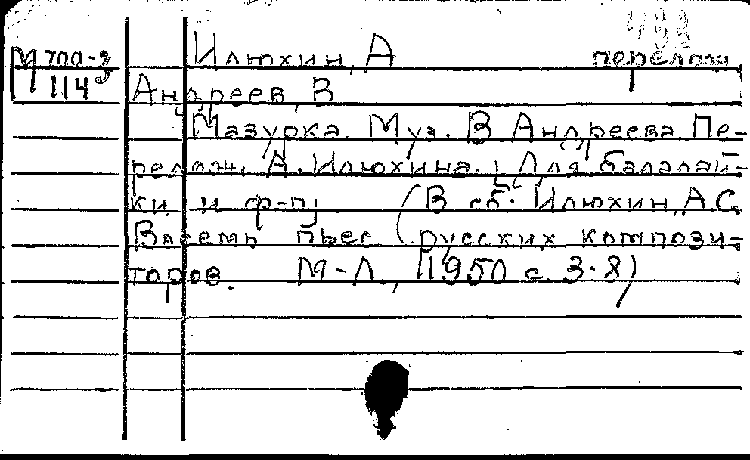 Илюхин, А перелож.
М 700-3
114
Андреев, В
Мазурка. Муз. В Андреева Пе-
релож. А. Илюхина. [Для балалай-
ки и ф-п]
(В сб. Илюхин, А.С.
Восемь пьес русских компози-
торов. М-Л, 1950 с. 3-8)